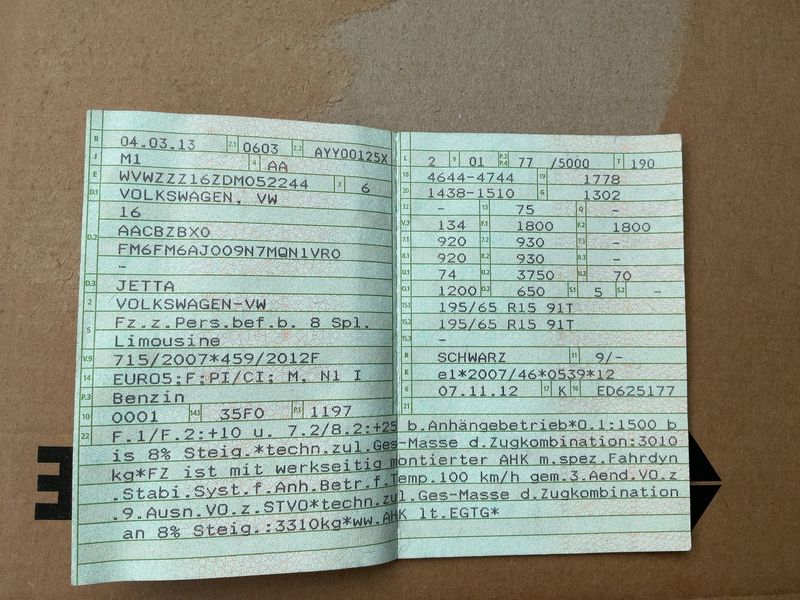 B 04.03.13 2.1 0603 2.2 AYY00125X
J M1 4 AA
E WVWZZZ16ZDM052244 3 6
D.1 VOLKSWAGEN, VW
16
D.2 AACBZBX0
FM6FM6AJ009N7MQN1VR0
-
D.3 JETTA
2 VOLKSWAGEN-VW
5 Fz.z.Pers.bef.b. 8 Spl.
Limousine
V.9 715/2007*459/2012F
14 EURO5;F;PI/CI; M, N1 I
P.3 Benzin
10 0001 14.1 35F0 P.1 1197
L 2 9 01 P.2 P.4 77 /5000 T 190
18 4644-4744 19 1778
20 1438-1510 G 1302
12 - 13 75 Q -
V.7 134 F.1 1800 F.2 1800
7.1 920 7.2 930 7.3 -
8.1 920 8.2 930 8.3 -
U.1 74 U.2 3750 U.3 70
O.1 1200 O.2 650 S.1 5 S.2 -
15.1 195/65 R15 91T
15.2 195/65 R15 91T
15.3 -
R SCHWARZ 11 9/-
K e1*2007/46*0539*12
6 07.11.12 17 K 16 ED625177
21
22 F.1/F.2:+10 u. 7.2/8.2:+25 b.Anhängebetrieb*O.1:1500 b
is 8% Steig.*techn.zul.Ges-Masse d.Zugkombination:3010
kg*FZ ist mit werkseitig montierter AHK m.spez.Fahrdyn
.Stabi.Syst.f.Anh.Betr.f.Temp.100 km/h gem.3.Aend.VO.z
.9.Ausn.VO.z.STVO*techn.zul.Ges-Masse d.Zugkombination
an 8% Steig.:3310kg*ww.AHK lt.EGTG*